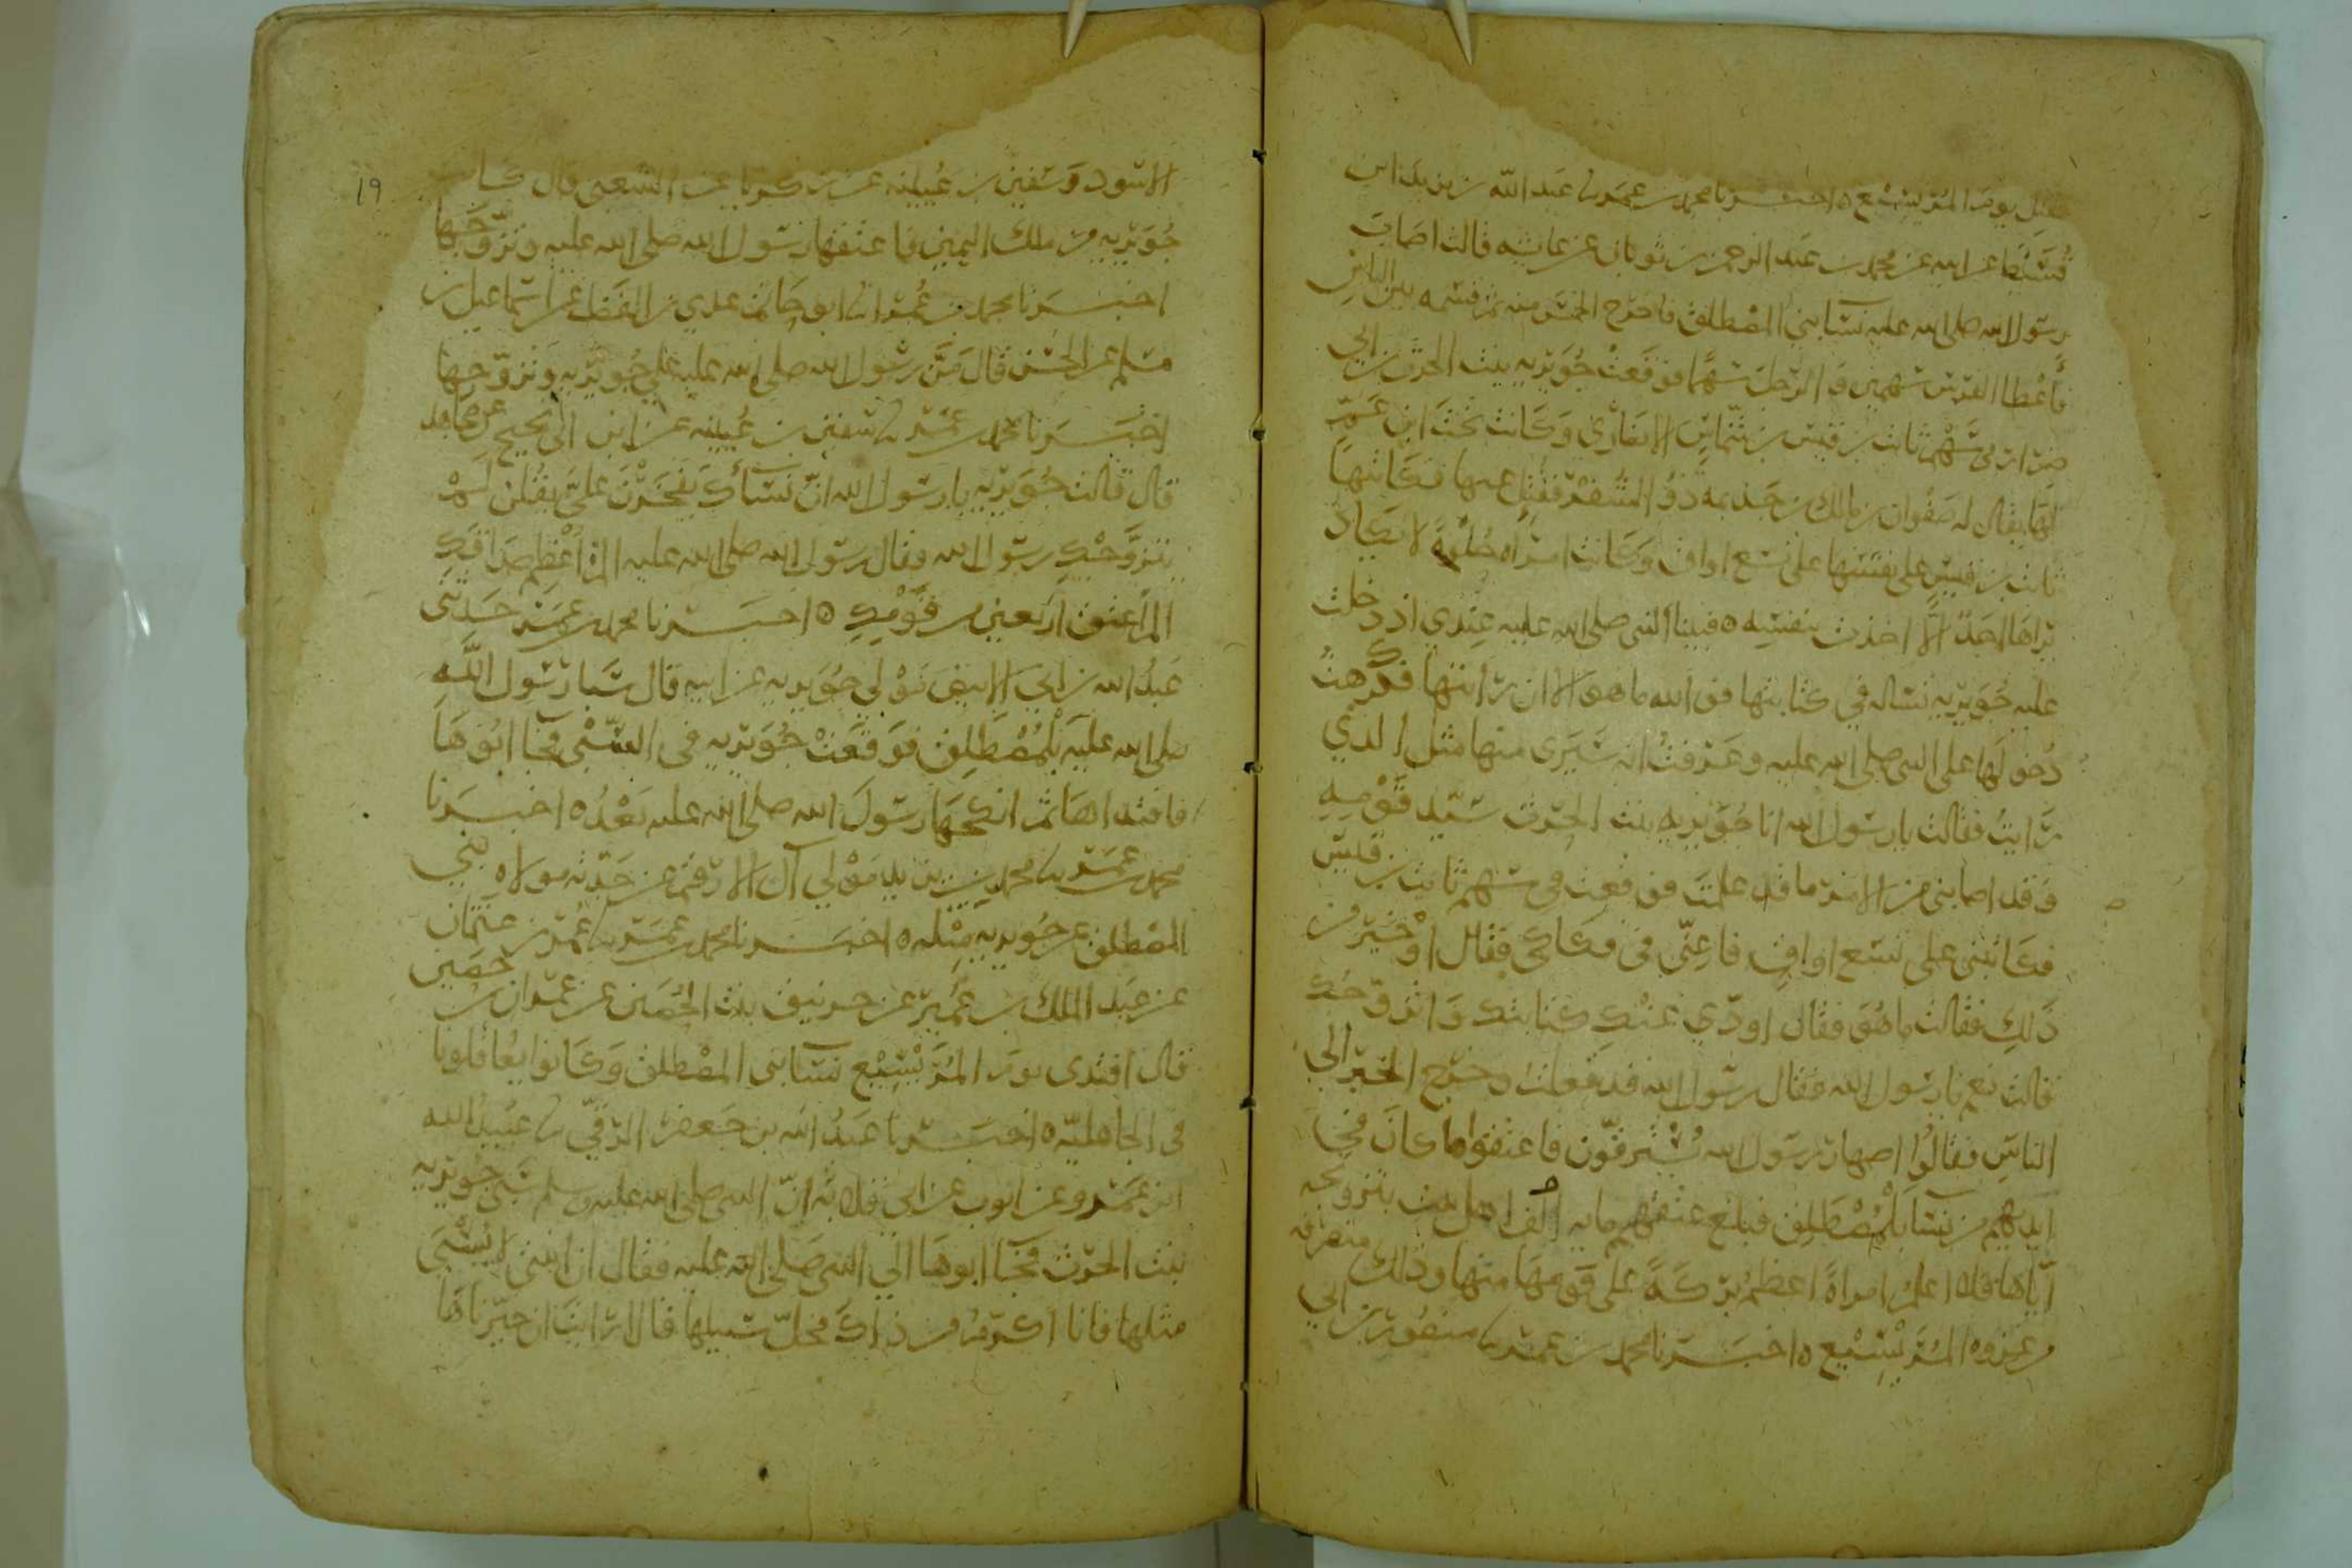 قتل يوم المريسيع ه اخبرنا محمد بن عمر نا عبد الله بن يزيد ابن
قسيط عن ابيه عن محمد بن عبد الرحمن بن ثوبان عن عايشه قالت اصاب
رسول الله صلى الله عليه نسا بني المصطلق فاخرج الخمس منه ثم قسمه بين الناس
فأعطا الفرس سهمين و الرجل سهما فوقعت جويريه بنت الحرث بن ابي
ضرار في سهم ثابت بن قيس بن شماس الانصاري وكانت تحت ابن عم
لها يقال له صفوان بن مالك بن جذيمه ذو الشفر فقتل عنها فكاتبها
ثابت بن قيس على نفسها على تسع اواق وكانت امراه حلوة لا يكاد
يراها احد الا اخذت بنفسه ه فبينا النبي صلى الله عليه عندي اذ دخلت
عليه جويريه تساله في كتابتها فو الله ما هو الا ان رايتها فكرهت
دخولها على النبي صلى الله عليه وعرفت انه سيرى منها مثل الذي
رايت فقالت يا رسول الله انا جويريه بنت الحرث سيد قومه
وقد اصابني من الامر ما قد علمت فوقعت في سهم ثابت بن قيس
فكاتبني على تسع اواق فاعني في فكاكي فقال او خير من
ذلك فقالت ما هو فقال اودي عنك كتابتك واتزوجك
قالت نعم يا رسول الله فقال رسول الله قد فعلت وخرج الخبر الى
الناس فقالوا اصهار رسول الله يسترقون فاعتقوا ما كان في
ايديهم من نسا بلمصطلق فبلغ عتقهم مايه اهل بيت بتزويجه
اياها فلا اعلم امراة اعظم بركة على قومها منها وذلك منصرفه
من غزوه المريسيع ه اخبرنا محمد بن عمر نا منصور بن ابي
الاسود وسفين بن عيينه عن زكريا عن الشعبي قال كانت
جويريه من ملك اليمين فاعتقها رسول الله صلى الله عليه وتزوجها
اخبرنا محمد بن عمر نا ابو حاتم عدي بن الفضل عن اسماعيل بن
مسلم عن الحسن قال من رسول الله صلى الله عليه على جويريه وتزوجها
اخبرنا محمد بن عمر نا سفين بن عيينه عن ابن ابي نجيح عن مجاهد
قال قالت جويريه يا رسول الله ان نساك يفخرن علي يقلن لم
يتزوجك رسول الله فقال رسول الله صلى الله عليه الم اعظم صداقك
الم اعتق اربعين من قومك ه اخبرنا محمد بن عمر حدثني
عبد الله بن ابي الابيض مولى جويريه عن ابيه قال سبا رسول الله
صلى الله عليه بلمصطلق فوقعت جويريه في السبي فجا ابوها
فافتداها ثم انكحها رسول الله صلى الله عليه بعد ه اخبرنا
محمد بن عمر نا محمد بن يزيد مولى آل الارقم عن جدته مولاه بني
المصطلق عن جويريه مثله ه اخبرنا محمد بن عمر نا عمر بن عثمان
عن عبد الملك بن عمير عن بنت الحصين عن عمران بن حصين
قال افتدى يوم المريسيع نسا بني المصطلق وكانوا يعاقلونا
في الجاهلية ه اخبرنا عبد الله بن جعفر الرقي نا عبيد الله
ابن عمرو عن ايوب عن ابي قلابه ان النبي صلى الله عليه وسلم سبى جويريه
بنت الحرث فجا ابوها الى النبي صلى الله عليه فقال ان ابنتي لا يسبى
مثلها فانا اكرم من ذاك فخل سبيلها قال ارايت ان خيرناها
١٩